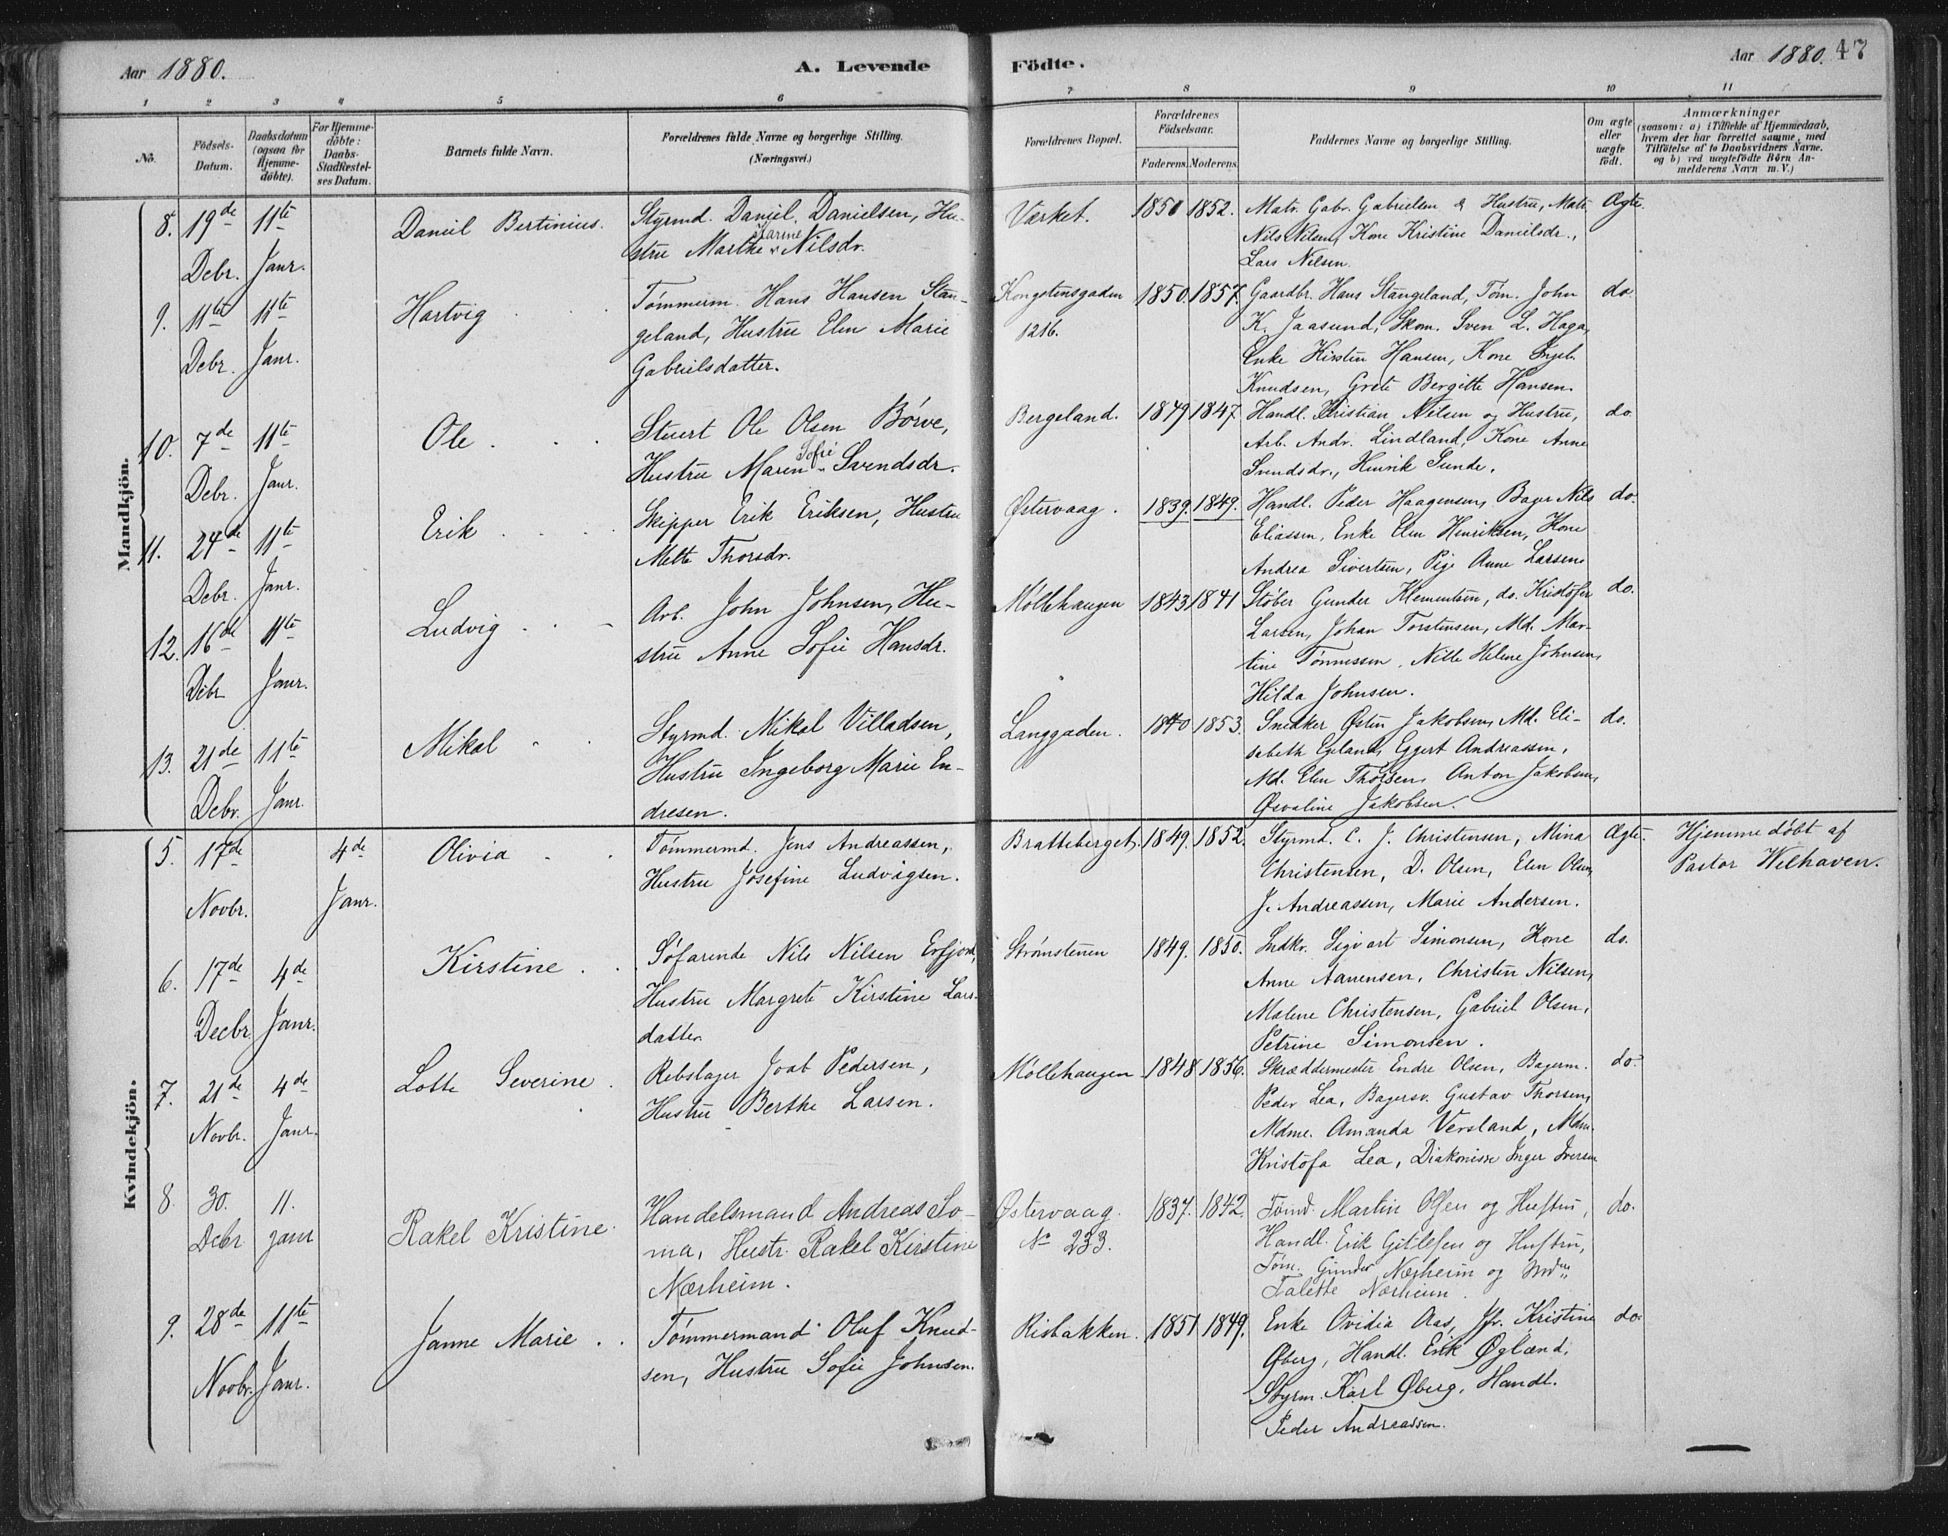 Aar 1880. A. Levende Födte. Aar 1880. 47
1 2 3 4 5 6 7 8 9 10 11
No. Födsels-Datum. Daabsdatum (ogsaa for Hjemme-döbte). For Hjemme-döbte: Daabs-Stadfæstel-ses Datum. Barnets fulde Navn. Forældrenes fulde Navne og borgerlige Stilling. (Næringsvei.) Forældrenes Bopæl. Forældrenes Födselsaar. Faderens. Moderens. Faddernes Navne og borgerlige Stilling. Om ægte eller uægte födt. Anmærkninger (saasom: a) i Tilfælde af Hjemmedaab, hvem der har forrettet samme, med Tilföielse af to Daabsvidners Navne, og b) ved uægtefödte Börn An-melderens Navn m. V.)
Mandkjön.
8. 19de Debr. 11te Janr. Daniel Bertinius. Styrmd. Daniel Danielsen, Hu-
stru Marthe Karine Nilsdr.
Værket. 1850 1852. Matr. Gabr. Gabrielsen & Hustru, Matr.
Nils Nilsen, Kone Kristine Danielsdr.,
Lars Nilsen.
Ægte.
9. 11te Debr. 11te Janr. Hartvig Tømmerm. Hans Hansen Stan-
geland, Hustru Elen Marie
Gabrielsdatter.
Kongstensgaden
1216.
1850. 1857. Gaardbr. Hans Stangeland, Tøm. John
K. Jaasund, Skom. Sven L. Haga,
Enke Kirsten Hansen, Kone Ingeb.
Knudsen, Grete Bergitte Hansen.
do
10. 7de Debr. 11te Janr. Ole Stuert Ole Olsen Børve,
Hustru Maren Sofie Svendsdr.
Bergeland. 1849 1847. Handl. Kristian Nilsen og Hustru,
Arb. Andr. Lindland, Kone Anne
Svendsdr., Henrik Sunde.
do
11. 24de Debr. 11te Janr. Erik Skipper Erik Eriksen, Hustru
Mette Thorsdr.
Østervaag. 1839. 1849. Handl. Peder Haagensen, Bager Nils
Eliassen, Enke Elen Henriksen, Kone
Andrea Sivertsen, Pige Anne Larsen.
do
12. 16de Debr 11te Janr. Ludvig Arb. John Johnsen, Hu-
stru Anne Sofie Hansdr.
Møllehaugen 1843 1841 Støber Gunder Klementsen, do. Kristofer
Larsen, Johan Torstensen, Md. Mar-
tine Tønnessen, Nille Helene Johnsen,
Hilda Johnsen.
do.
13. 21de Debr. 11te Janr. Mikal Styrmd. Mikal Villadsen,
Hustru Ingeborg Marie En-
dresen.
Langgaden. 1840 1853. Snedker Østen Jakobsen, Md. Eli-
sabeth Egeland, Eggert Andreassen,
Md. Elen Thorsen, Anton Jakobsen,
Osvaline Jakobsen.
do.
Kvindekjön.
5. 17de Novbr. 4de Janr. Olivia Tømmermd. Jens Andreassen,
Hustru Josefine Ludvigsen.
Bratteberget. 1849. 1852. Styrmd. C. J. Christensen, Mina
Christensen, D. Olsen, Elen Olsen,
J. Andreassen, Marie Andersen.
Ægte. Hjemmedøbt af
Pastor Welhaven.
6. 17de Decbr 4de Janr. Kirstine Søfarende Nils Nilsen Erfjord,
Hustru Margrete Kirstine Lars-
datter
Strømstenen 1849. 1850. Sndkr. Sigvart Simonsen, Kone
Anne Aanensen, Christen Nilsen,
Malene Christensen, Gabriel Olsen,
Petrine Simonsen.
do.
7. 21de Novbr. 4de Janr. Lotte Severine. Rebslager Joat Pedersen,
Hustru Berthe Larsen.
Møllehaugen 1848 1856. Skræddermester Endre Olsen, Bagerm.
Peder Lea, Bagersv. Gustav Thorsen,
Mdme. Amanda Versland, Mdm.
Kristofa Lea, Diakonisse Inger Iversen
do.
8. 30. Debr 11. janr Rakel Kristine. Handelsmand Andreas So-
ma, Hustr. Rakel Kirstine
Nærheim.
Østervaag.
No 233.
1837. 1842. Tømd. Martin Olsen og Hustru,
Handl. Erik Gitlesen og Hustru,
Tøm. Gunder Nærheim og
Talette Nærheim.
do.
9. 28de Novbr. 11te Janr. Janne Marie Tømmermand Oluf Knud-
sen, Hustru Sofie Johnsen.
Risbakken. 1851 1849. Enke Ovidia Aas, Jfr. Kristine
Øberg, Handl. Erik Øglænd,
Styrm. Karl Øberg, Handl.
Peder Andreassen.
do.